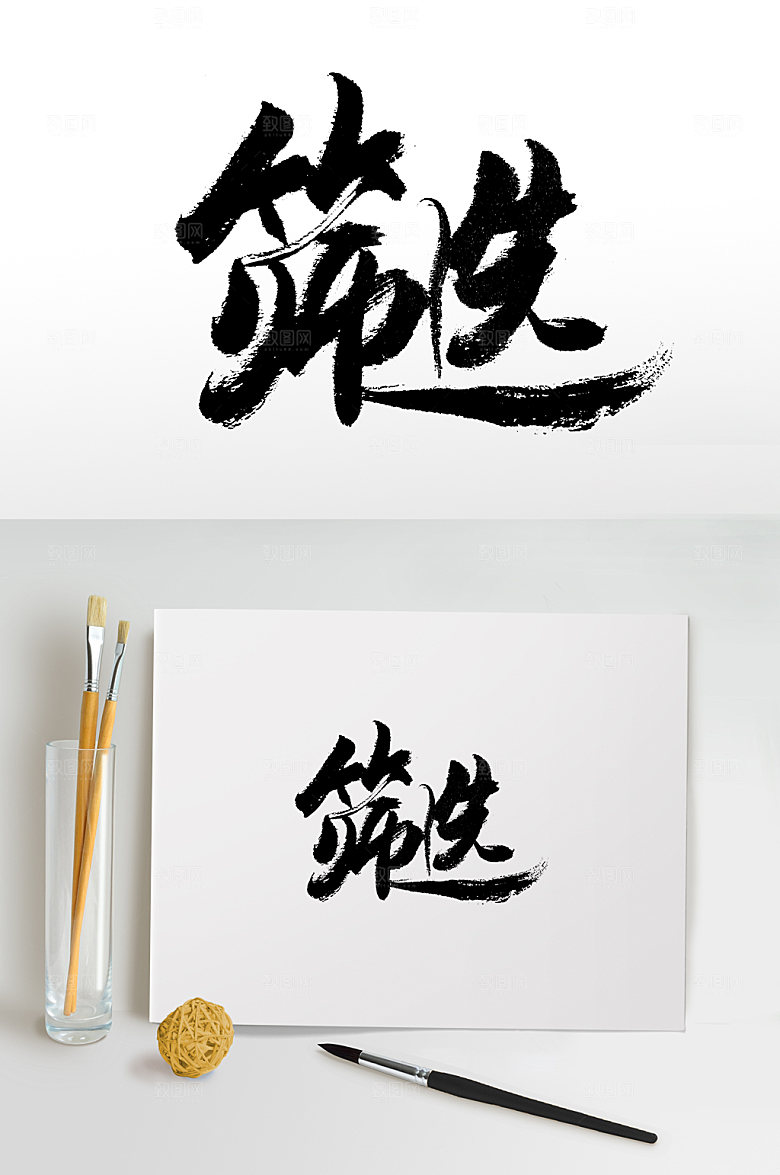 筛选
筛选